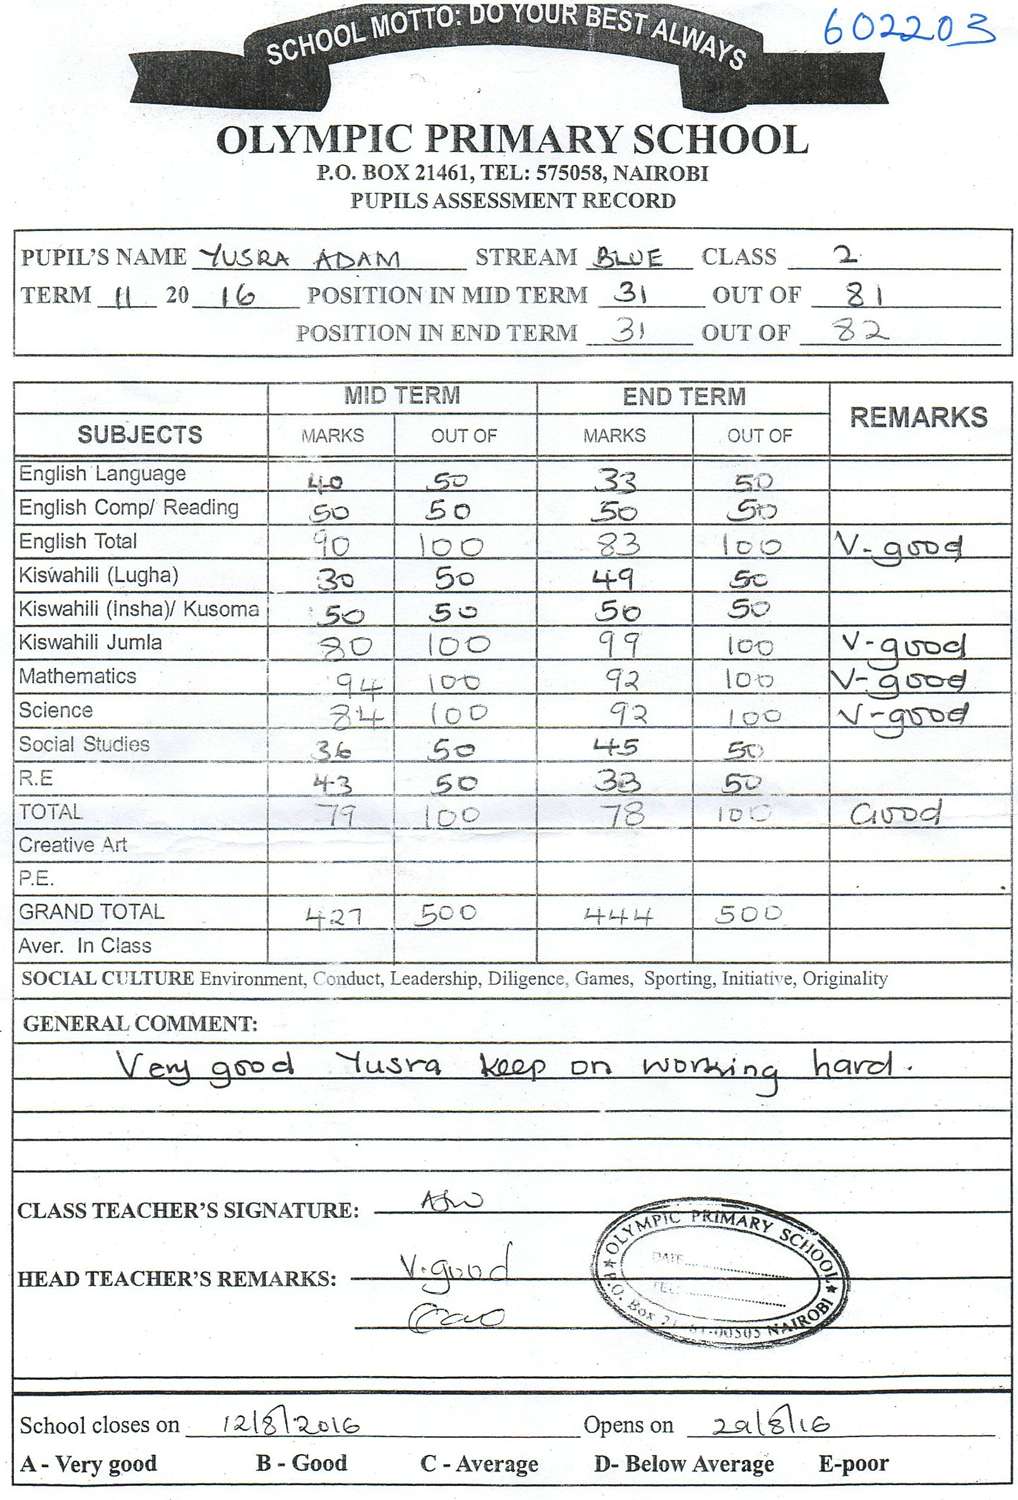 SCHOOL MOTTO: DO YOUR BEST ALWAYS
602203
OLYMPIC PRIMARY SCHOOL
P.O. BOX 21461, TEL: 575058, NAIROBI
PUPILS ASSESSMENT RECORD
PUPIL'S NAME YUSRA ADAM STREAM BLUE CLASS 2
TERM 11 20 16 POSITION IN MID TERM 31 OUT OF 81
POSITION IN END TERM 31 OUT OF 82
MID TERM END TERM REMARKS
SUBJECTS MARKS OUT OF MARKS OUT OF
English Language 40 50 33 50
English Comp/ Reading 50 50 50 50
English Total 90 100 83 100 V-good
Kiswahili (Lugha) 30 50 49 50
Kiswahili (Insha)/ Kusoma 50 50 50 50
Kiswahili Jumla 80 100 99 100 V-good
Mathematics 94 100 92 100 V-good
Science 84 100 92 100 V-good
Social Studies 36 50 45 50
R.E 43 50 33 50
TOTAL 79 100 78 100 Good
Creative Art
P.E.
GRAND TOTAL 427 500 444 500
Aver. In Class
SOCIAL CULTURE Environment, Conduct, Leadership, Diligence, Games, Sporting, Initiative, Originality
GENERAL COMMENT:
Very good Yusra keep on working hard.
CLASS TEACHER'S SIGNATURE:
HEAD TEACHER'S REMARKS: V.good
OLYMPIC PRIMARY SCHOOL
DATE
P.O. Box NAIROBI
School closes on 12/8/2016 Opens on 29/8/16
A - Very good B - Good C - Average D- Below Average E-poor